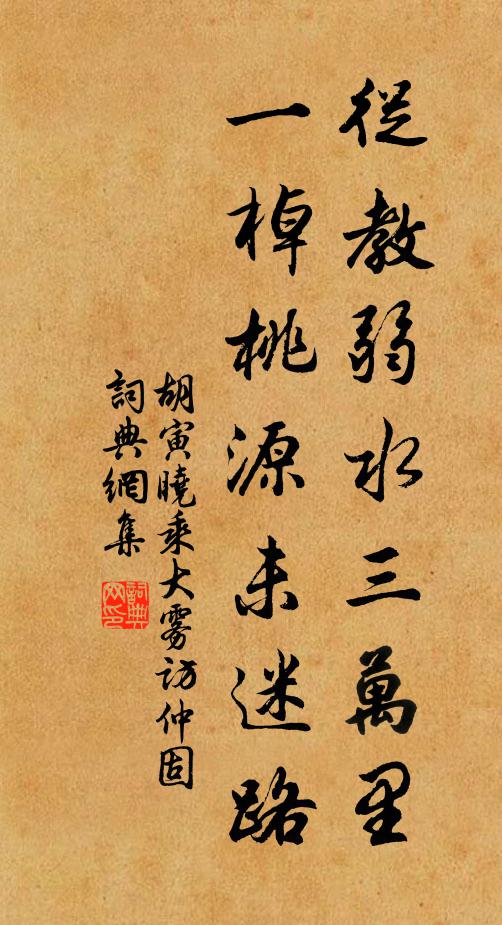 從教弱水三萬里
一棹桃源未迷路
胡寅曉乘大雾访仲固
詞典網集
詞典网印